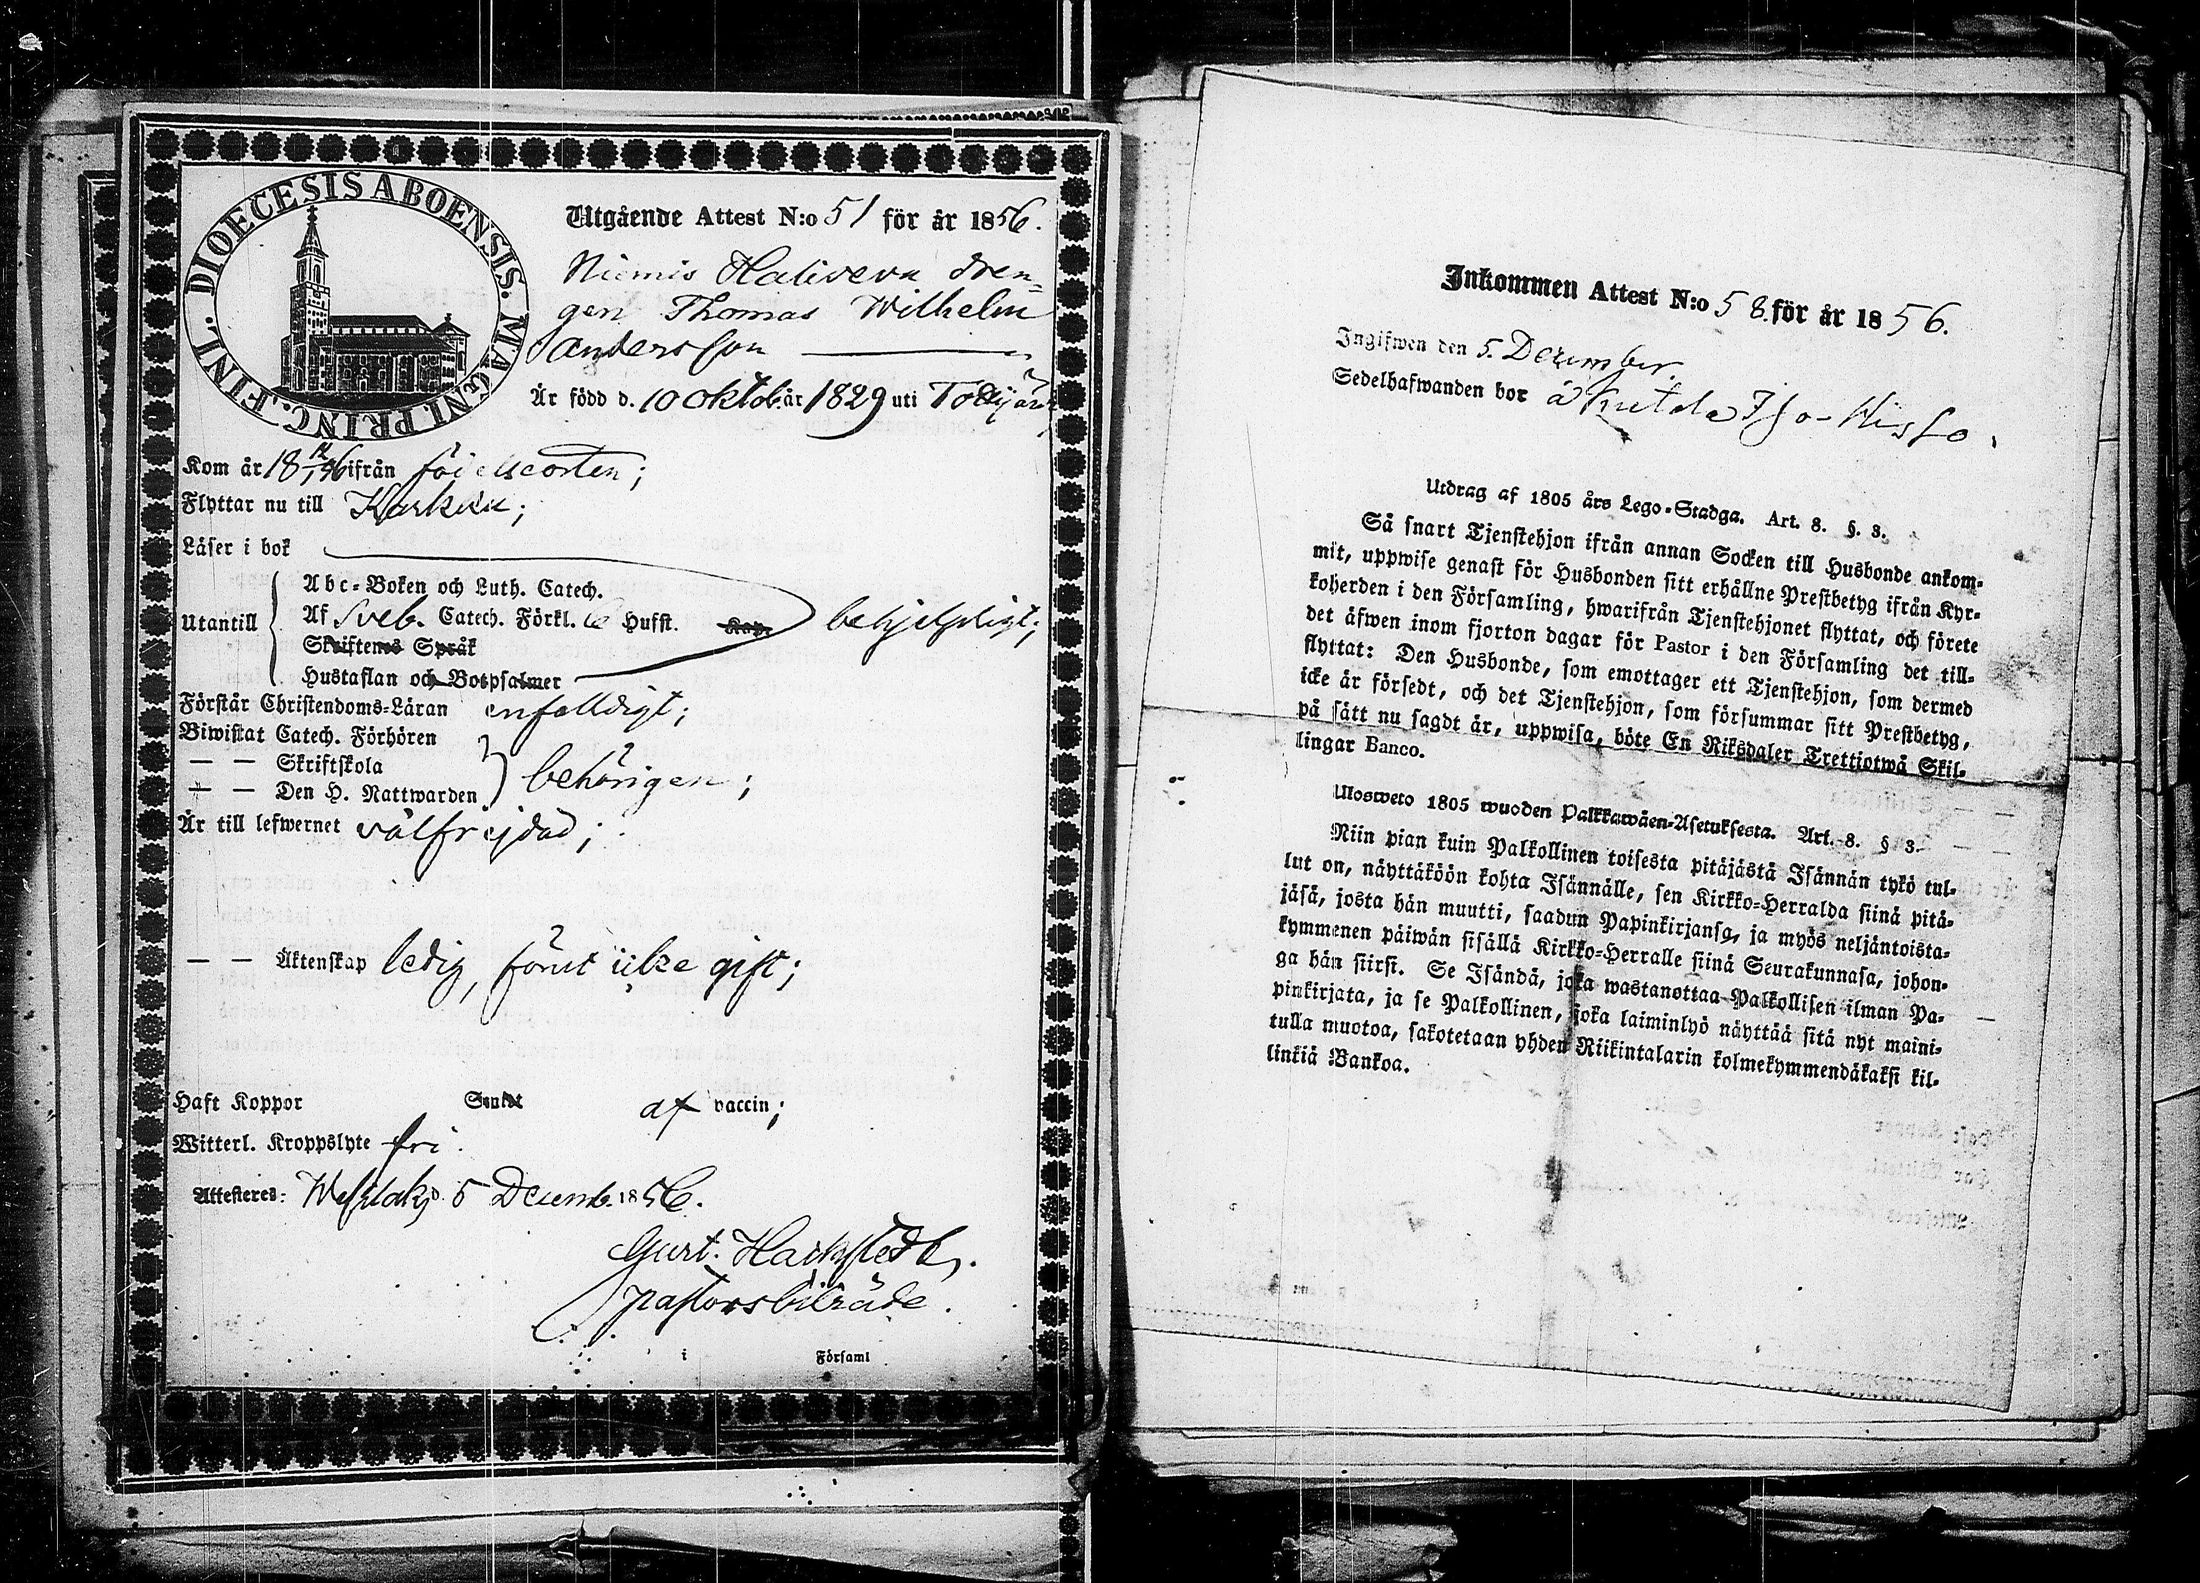 DIOECESIS ABOENSIS. MAGNI. PRINC. FINL.
Utgående Attest N:o 51 för år 1856.
Niemis drän-
gen Thomas Wilhelm
Andersson
Är född d. 10 Oktob. år 1829 uti
Kom år 18 ifrån födelseorten;
Flyttar nu till Karkku;
Läser i bok
Utantill
Abc-Boken och Luth. Catech.
Af Sveb. Catech. Förkl. Husst. Kap.
behjelpligt;
Skriftenes Språk
Hustaflan och Botpsalmer
Förstår Christendoms-Läran enfaldigt;
Biwistat Catech. Förhören
— — Skriftskola
behörigen;
— — Den H. Nattwarden
Är till lefwernet välfrejdad;
— — Äktenskap ledig, förut icke gift;
Haft Koppor af vaccin;
Witterl. Kroppslyte fri.
Attesteres: d. 5 Decemb. 1856.
pastorsbiträde.
i Församl
Inkommen Attest N:o 58. för år 1856.
Ingifwen den 5. December.
Sedelhafwanden bor å
Utdrag af 1805 års Lego-Stadga. Art. 8. §. 3.
Så snart Tjenstehjon ifrån annan Socken till Husbonde ankom-
mit, uppwise genast för Husbonden sitt erhållne Prestbetyg ifrån Kyr-
koherden i den Församling, hwarifrån Tjenstehjonet flyttat, och förete
det äfwen inom fjorton dagar för Pastor i den Församling det till-
flyttat: Den Husbonde, som emottager ett Tjenstehjon, som dermed
icke är försedt, och det Tjenstehjon, som försummar sitt Prestbetyg,
på sätt nu sagdt är, uppwisa, böte En Riksdaler Trettiotwå Skil-
lingar Banco.
Ulosweto 1805 wuoden Palkkawäen-Asetuksesta. Art. 8. § 3.
Niin pian kuin Palkollinen toisesta pitäjästä Isännän tykö tul-
lut on, näyttäköön kohta Isännälle, sen Kirkko-Herralda siinä pitä-
jäsä, josta hän muutti, saadun Papinkirjansa, ja myös neljäntoista-
kymmenen päiwän sisällä Kirkko-Herralle siinä Seurakunnasa, johon-
ga hän siirsi. Se Isändä, joka wastanottaa Palkollisen ilman Pa-
pinkirjata, ja se Palkollinen, joka laiminlyö näyttää sitä nyt maini-
tulla muotoa, sakotetaan yhden Riikintalarin kolmekymmendäkaksi kil-
linkiä Bankoa.